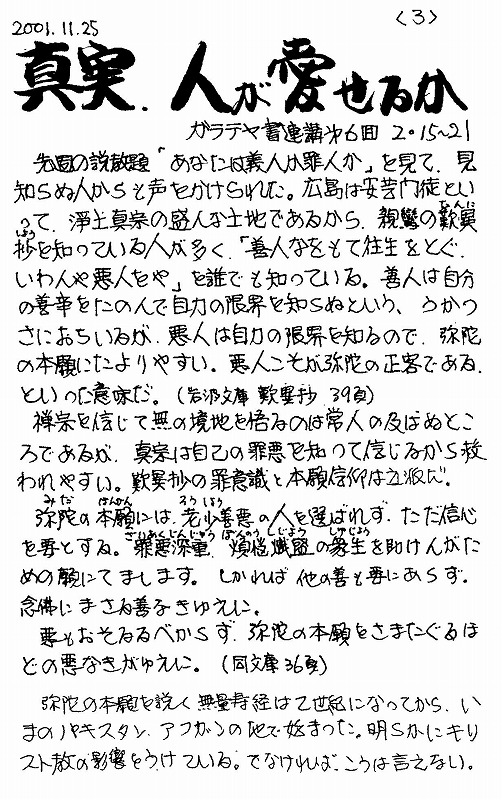 〈3〉
2001.11.25
真実、人が愛せるか
ガラテヤ書連講第6回 2.15~21
先週の説教題「あなたは義人か罪人か」を見て、見
知らぬ人からも声をかけられた。広島は安芸門徒とい
って、浄土真宗の盛んな土地であるから、親鸞の歎異
たんに
抄を知っている人が多く、「善人なをもて往生をとぐ、
しょう
いわんや悪人をや」を誰でも知っている。善人は自分
の善幸をたのんで自力の限界を知らぬという、うかつ
さにおちいるが、悪人は自力の限界を知るので、弥陀
の本願にたよりやすい。悪人こそが弥陀の正客である、
といった意味だ。(岩波文庫 歎異抄 39頁)
禅宗を信じて無の境地を悟るのは常人の及ばぬとこ
ろであるが、真宗は自己の罪悪を知って信じるから救
われやすい。歎異抄の罪意識と本願信仰は立派だ。
みだ ほんがん ろうしょう
弥陀の本願には、老少善悪の人を選ばれず、ただ信心
を要とする。罪悪深重、煩悩熾盛の衆生を助けんがた
ざいあくじんじゅう ぼんのう しじょう しゅじょう
めの願にてまします。しかれば他の善も要にあらず、
念佛にまさる善なきゆえに。
悪もおそるるべからず、弥陀の本願をさまたぐるほ
どの悪なきがゆえに。(同文庫36頁)
弥陀の本願を説く無量寿経は2世紀になってから、い
まのパキスタン、アフガンの地で始まった。明らかにキリ
スト教の影響をうけている。でなければ、こうは言えない。